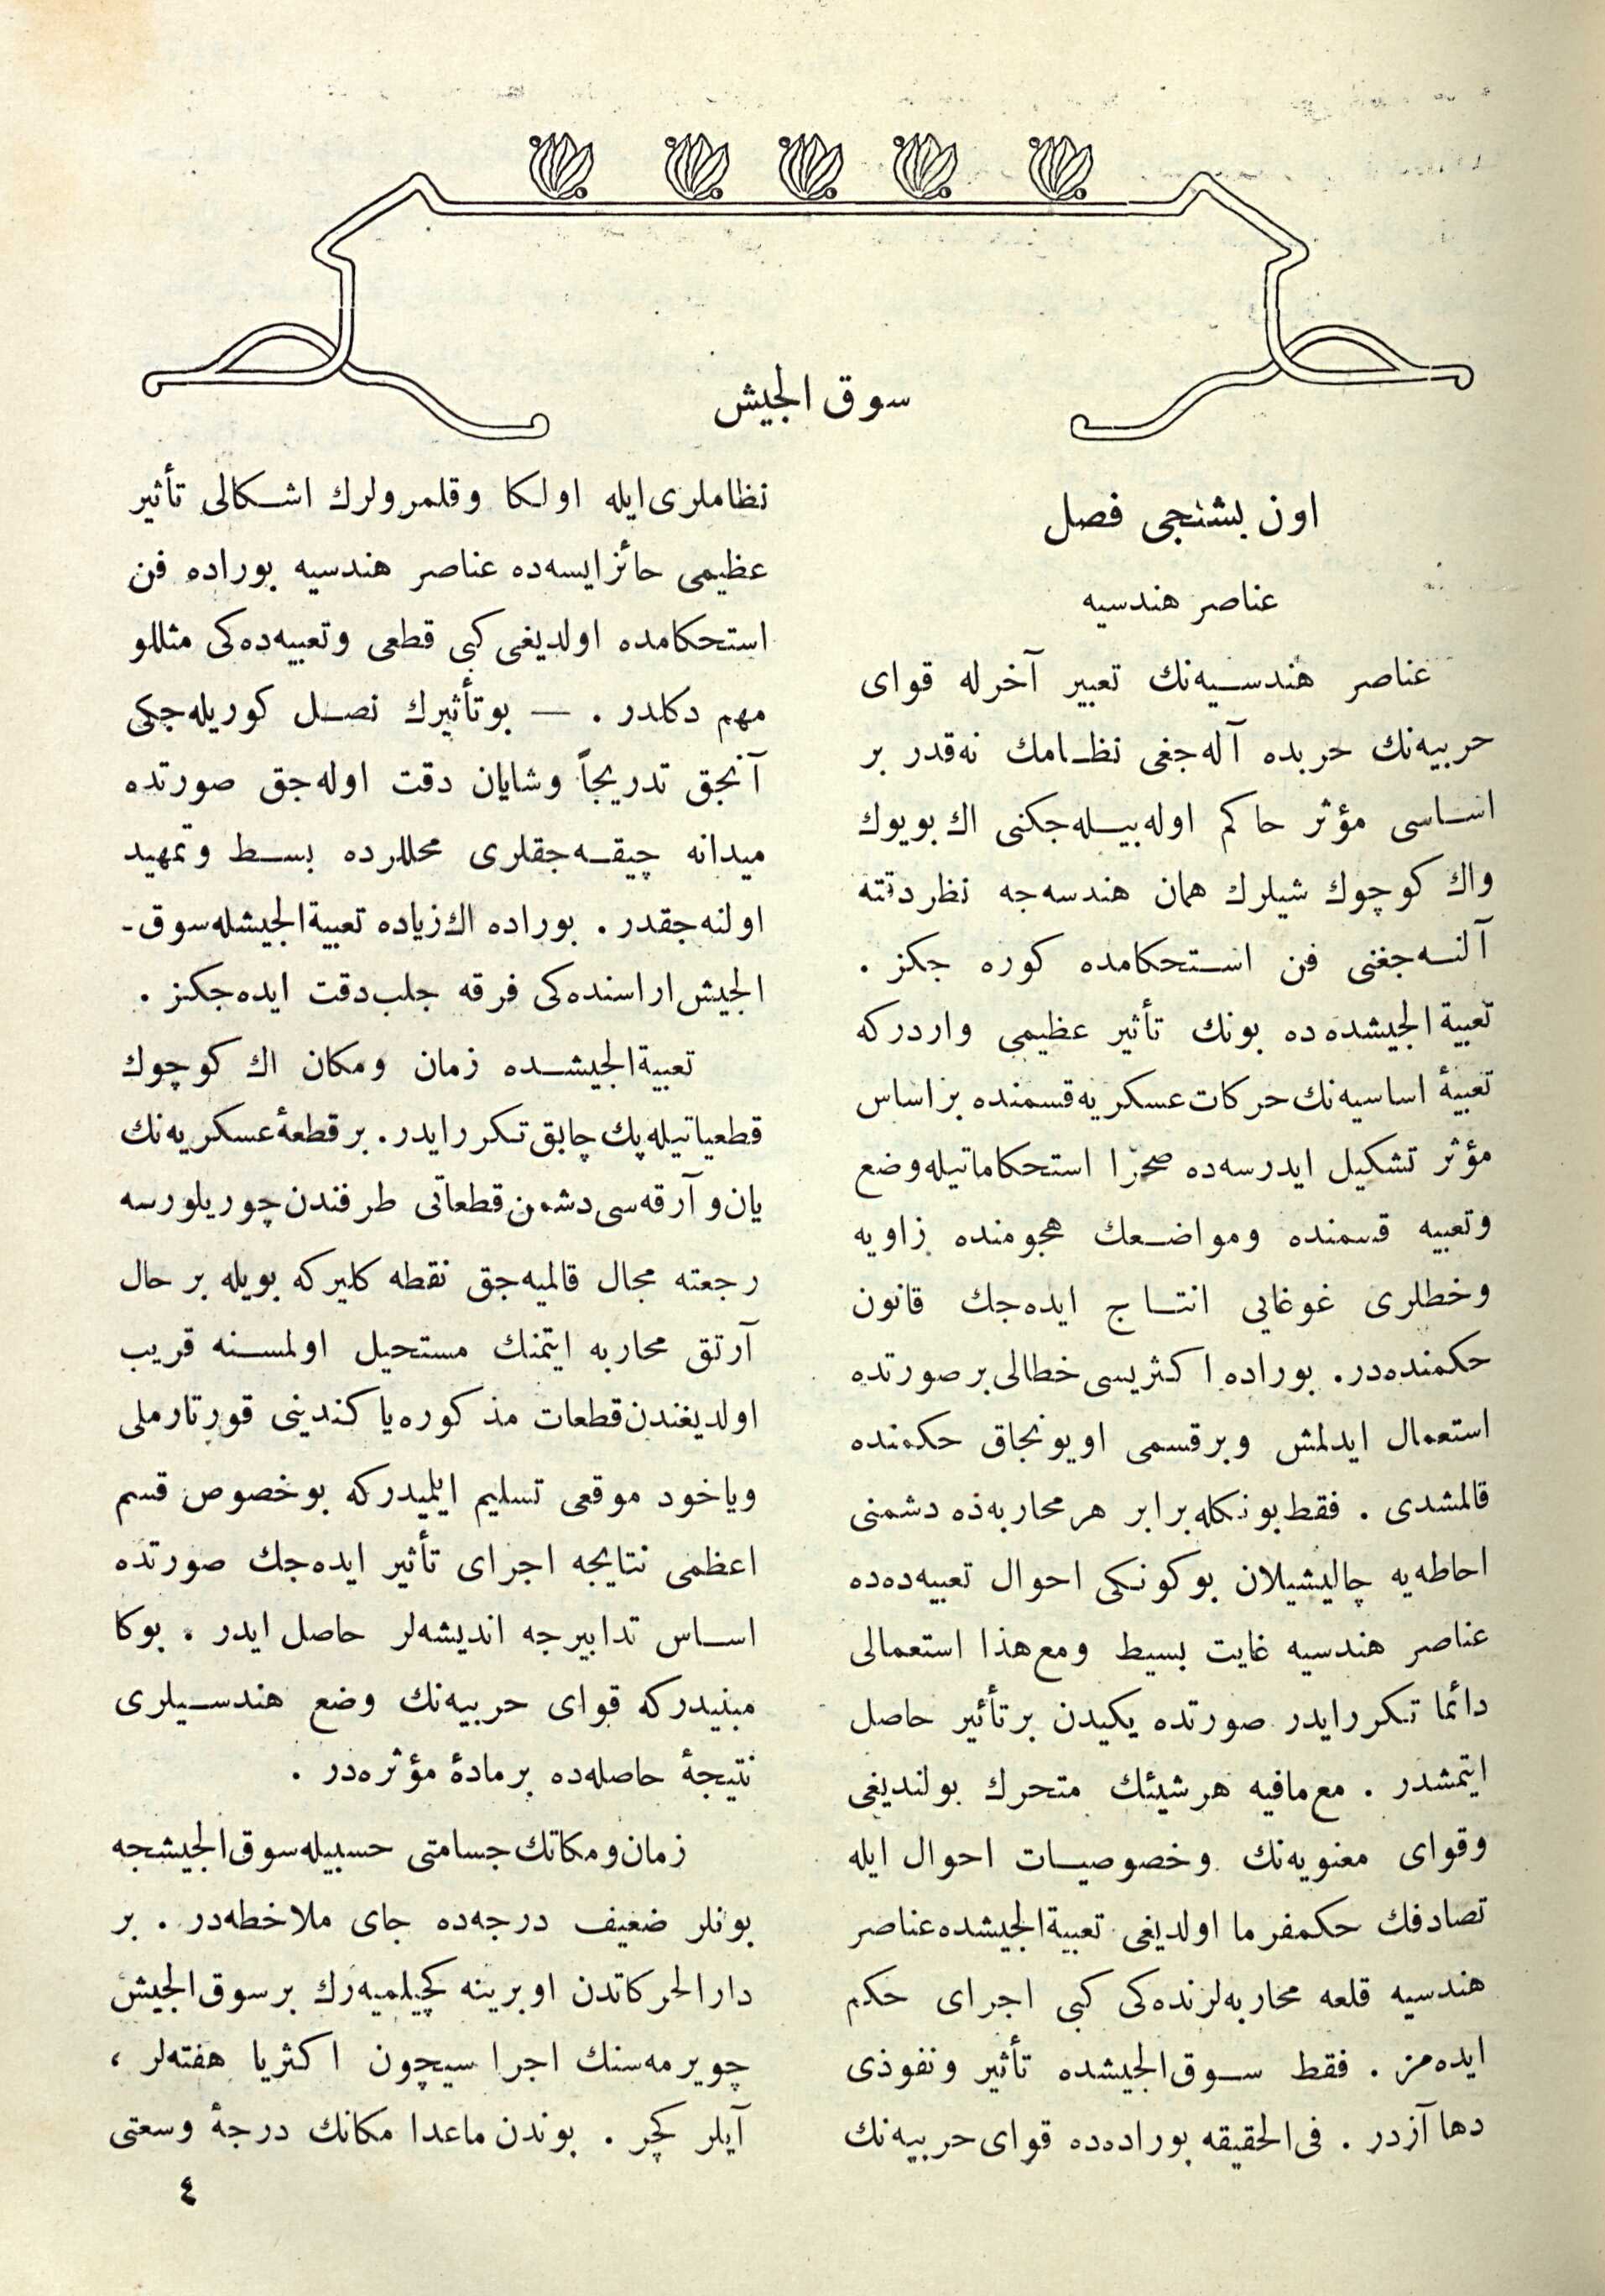 سوق الجیش
اون بشنجی فصل
عناصر هندسیه
عناصر هندسیه‌نك تعبیر آخرله قوای
حربیه‌نك حربده آله‌جغی نظامك نه‌قدر بر
اساسی مؤثر حاكم اوله‌بیله‌جكنی اك بویوك
واك كوچوك شیلرك همان هندسه‌جه نظر دقته
آلنه‌جغنی فن استحكامده كوره جكز .
تعبیة‌الجیشده ده بونك تأثیر عظیمی واردركه
تعبیهٔ اساسیه‌نك حركات عسكریه قسمنده براساس
مؤثر تشكیل ایدرسه‌ده صحرّا استحكاماتیله وضع
وتعبیه قسمنده ومواضعك هجومنده زاویه
وخطلری غوغایی انتاج ایده‌جك قانون
حكمنده‌در. بوراده اكثریسی خطالی بر صورتده
استعمال ایدلمش وبرقسمی اویونجاق حكمنده
قالمشدی . فقط بونكله برابر هر محاربه‌ذه دشمنی
احاطه‌یه چالیشیلان بوكونكی احوال تعبیه‌ده‌ده
عناصر هندسیه غایت بسیط ومع‌هذا استعمالی
دائما تكررایدر صورتده یكیدن برتأثیر حاصل
ایتمشدر . مع‌مافیه هرشیئك متحرك بولندیغی
وقوای معنویه‌نك وخصوصیات احوال ایله
تصادفك حكمفرما اولدیغی تعبیة‌الجیشده عناصر
هندسیه قلعه محاربه‌لرنده‌كی كبی اجرای حكم
ایده‌مز . فقط سوق‌الجیشده تأثیر ونفوذی
دها آزدر . فی‌الحقیقه بوراده‌ده قوای حربیه‌نك
نظاملری‌ایله اولكا وقلمرولرك اشكالی تأثیر
عظیمی حائزایسه‌ده عناصر هندسیه بوراده فن
استحكامده اولدیغی كبی قطعی وتعبیه‌ده‌كی مثللو
مهم دكلدر . — بوتأثیرك نصل كوریله‌جكی
آنجق تدریجاً وشایان دقت اوله‌جق صورتده
میدانه چیقه‌جقلری محللرده بسط وتمهید
اولنه‌جقدر . بوراده اك‌زیاده تعبیة‌الجیشله سوق-
الجیش اراسنده‌كی فرقه جلب‌دقت ایده‌جكنز .
تعبیة‌الجیشده زمان ومكان اك كوچوك
قطعیاتیله پك چابق تكررایدر. برقطعهٔ عسكریه‌نك
یان‌و آرقه‌سی دشمن قطعاتی طرفندن چوریلورسه
رجعته مجال قالمیه‌جق نقطه كلیركه بویله بر حال
آرتق محاربه ایتمنك مستحیل اولمسنه قریب
اولدیغندن قطعات مذكوره‌یا كندینی قورتارملی
ویاخود موقعی تسلیم ایلمیدركه بوخصوص قسم
اعظمی نتایجه اجرای تأثیر ایده‌جك صورتده
اساس تدابیرجه اندیشه‌لر حاصل ایدر . بوكا
مبنیدركه قوای حربیه‌نك وضع هندسیلری
نتیجهٔ حاصله‌ده برمادهٔ مؤثره‌در .
زمان‌ومكاتك جسامتی حسبیله سوق‌الجیشجه
بونلر ضعیف درجه‌ده جای ملاخظه‌در . بر
دارالحركاتدن اوبرینه كچیلمیه‌رك برسوق‌الجیش
چویرمه‌سنك اجرا سیچون اكثریا هفته‌لر ،
آیلر كچر . بوندن ماعدا مكانك درجهٔ وسعتی
٤